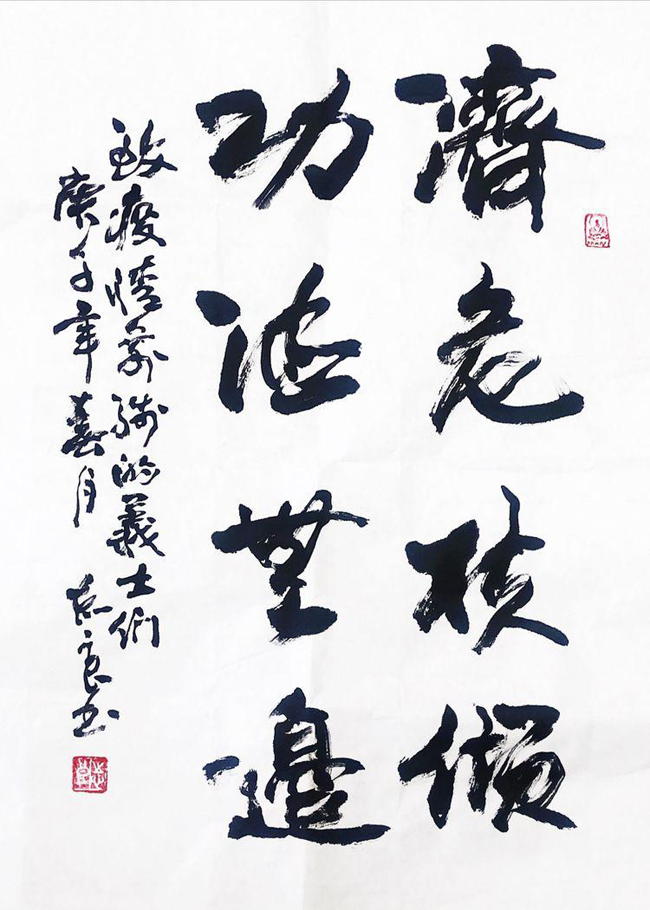 濟危扶傾
功德無邊
致疫情前线的義士們
庚子年春月 良书